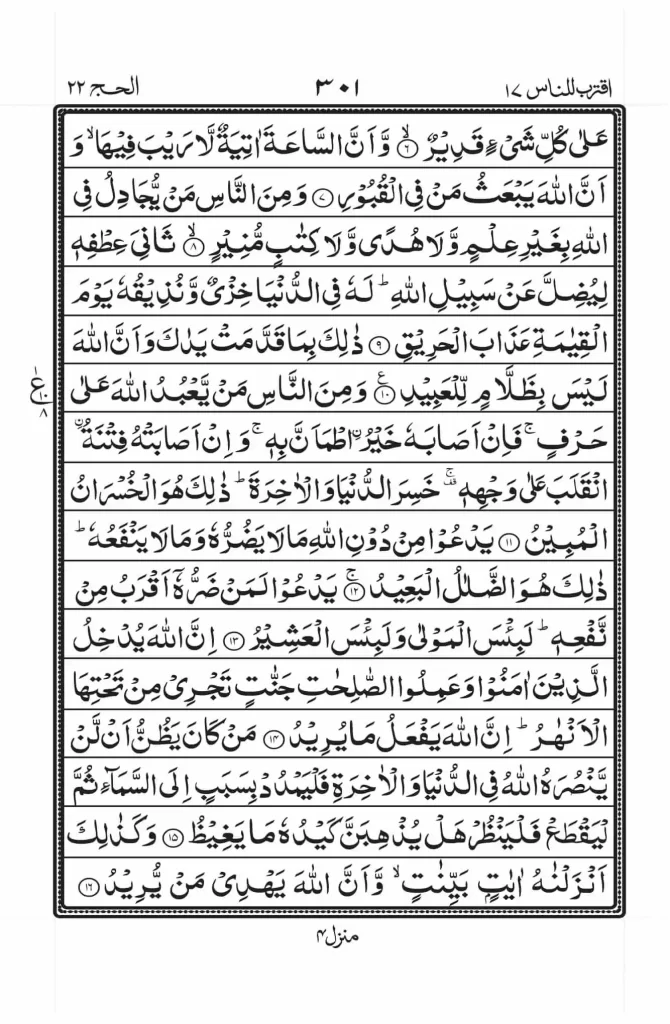 اقترب للناس ١٧ ٣٠١ الحج ٢٢
عَلٰى كُلِّ شَىْءٍ قَدِيْرٌ ۙ‏﴿۶﴾ وَّاَنَّ السَّاعَةَ اٰتِيَةٌ لَّا رَيْبَ فِيْهَا ۙ وَ
اَنَّ اللّٰهَ يَبْعَثُ مَنْ فِى الْقُبُوْرِ ﴿۷﴾ وَمِنَ النَّاسِ مَنْ يُّجَادِلُ فِى
اللّٰهِ بِغَيْرِ عِلْمٍ وَّلَا هُدًى وَّلَا كِتٰبٍ مُّنِيْرٍ ۙ‏﴿۸﴾ ثَانِىَ عِطْفِهٖ
لِيُضِلَّ عَنْ سَبِيْلِ اللّٰهِ ؕ لَهٗ فِى الدُّنْيَا خِزْىٌ وَّنُذِيْقُهٗ يَوْمَ
الْقِيٰمَةِ عَذَابَ الْحَرِيْقِ ﴿۹﴾ ذٰلِكَ بِمَا قَدَّمَتْ يَدٰكَ وَاَنَّ اللّٰهَ
لَيْسَ بِظَلَّامٍ لِّلْعَبِيْدِ ﴿۱۰﴾ ع وَمِنَ النَّاسِ مَنْ يَّعْبُدُ اللّٰهَ عَلٰى
ع ١ ١٠ ٨
حَرْفٍ ۚ فَاِنْ اَصَابَهٗ خَيْرُ ۨ اطْمَاَنَّ بِهٖ ۚ وَاِنْ اَصَابَتْهُ فِتْنَةُ ۨ
انْقَلَبَ عَلٰى وَجْهِهٖ ۚ قف خَسِرَ الدُّنْيَا وَالْاٰخِرَةَ ؕ ذٰلِكَ هُوَ الْخُسْرَانُ
الْمُبِيْنُ ﴿۱۱﴾ يَدْعُوْا مِنْ دُوْنِ اللّٰهِ مَا لَا يَضُرُّهٗ وَمَا لَا يَنْفَعُهٗ ؕ
ذٰلِكَ هُوَ الضَّلٰلُ الْبَعِيْدُ ۚ‏﴿۱۲﴾ يَدْعُوْا لَمَنْ ضَرُّهٗۤ اَقْرَبُ مِنْ
نَّفْعِهٖ ؕ لَبِئْسَ الْمَوْلٰى وَلَبِئْسَ الْعَشِيْرُ ﴿۱۳﴾ اِنَّ اللّٰهَ يُدْخِلُ
الَّذِيْنَ اٰمَنُوْا وَعَمِلُوا الصّٰلِحٰتِ جَنّٰتٍ تَجْرِىْ مِنْ تَحْتِهَا
الْاَنْهٰرُ ؕ اِنَّ اللّٰهَ يَفْعَلُ مَا يُرِيْدُ ﴿۱۴﴾ مَنْ كَانَ يَظُنُّ اَنْ لَّنْ
يَّنْصُرَهُ اللّٰهُ فِى الدُّنْيَا وَالْاٰخِرَةِ فَلْيَمْدُدْ بِسَبَبٍ اِلَى السَّمَآءِ ثُمَّ
لْيَقْطَعْ فَلْيَنْظُرْ هَلْ يُذْهِبَنَّ كَيْدُهٗ مَا يَغِيْظُ ﴿۱۵﴾ وَكَذٰلِكَ
اَنْزَلْنٰهُ اٰيٰتٍۢ بَيِّنٰتٍ ۙ وَّاَنَّ اللّٰهَ يَهْدِىْ مَنْ يُّرِيْدُ ﴿۱۶﴾
منزل ۴